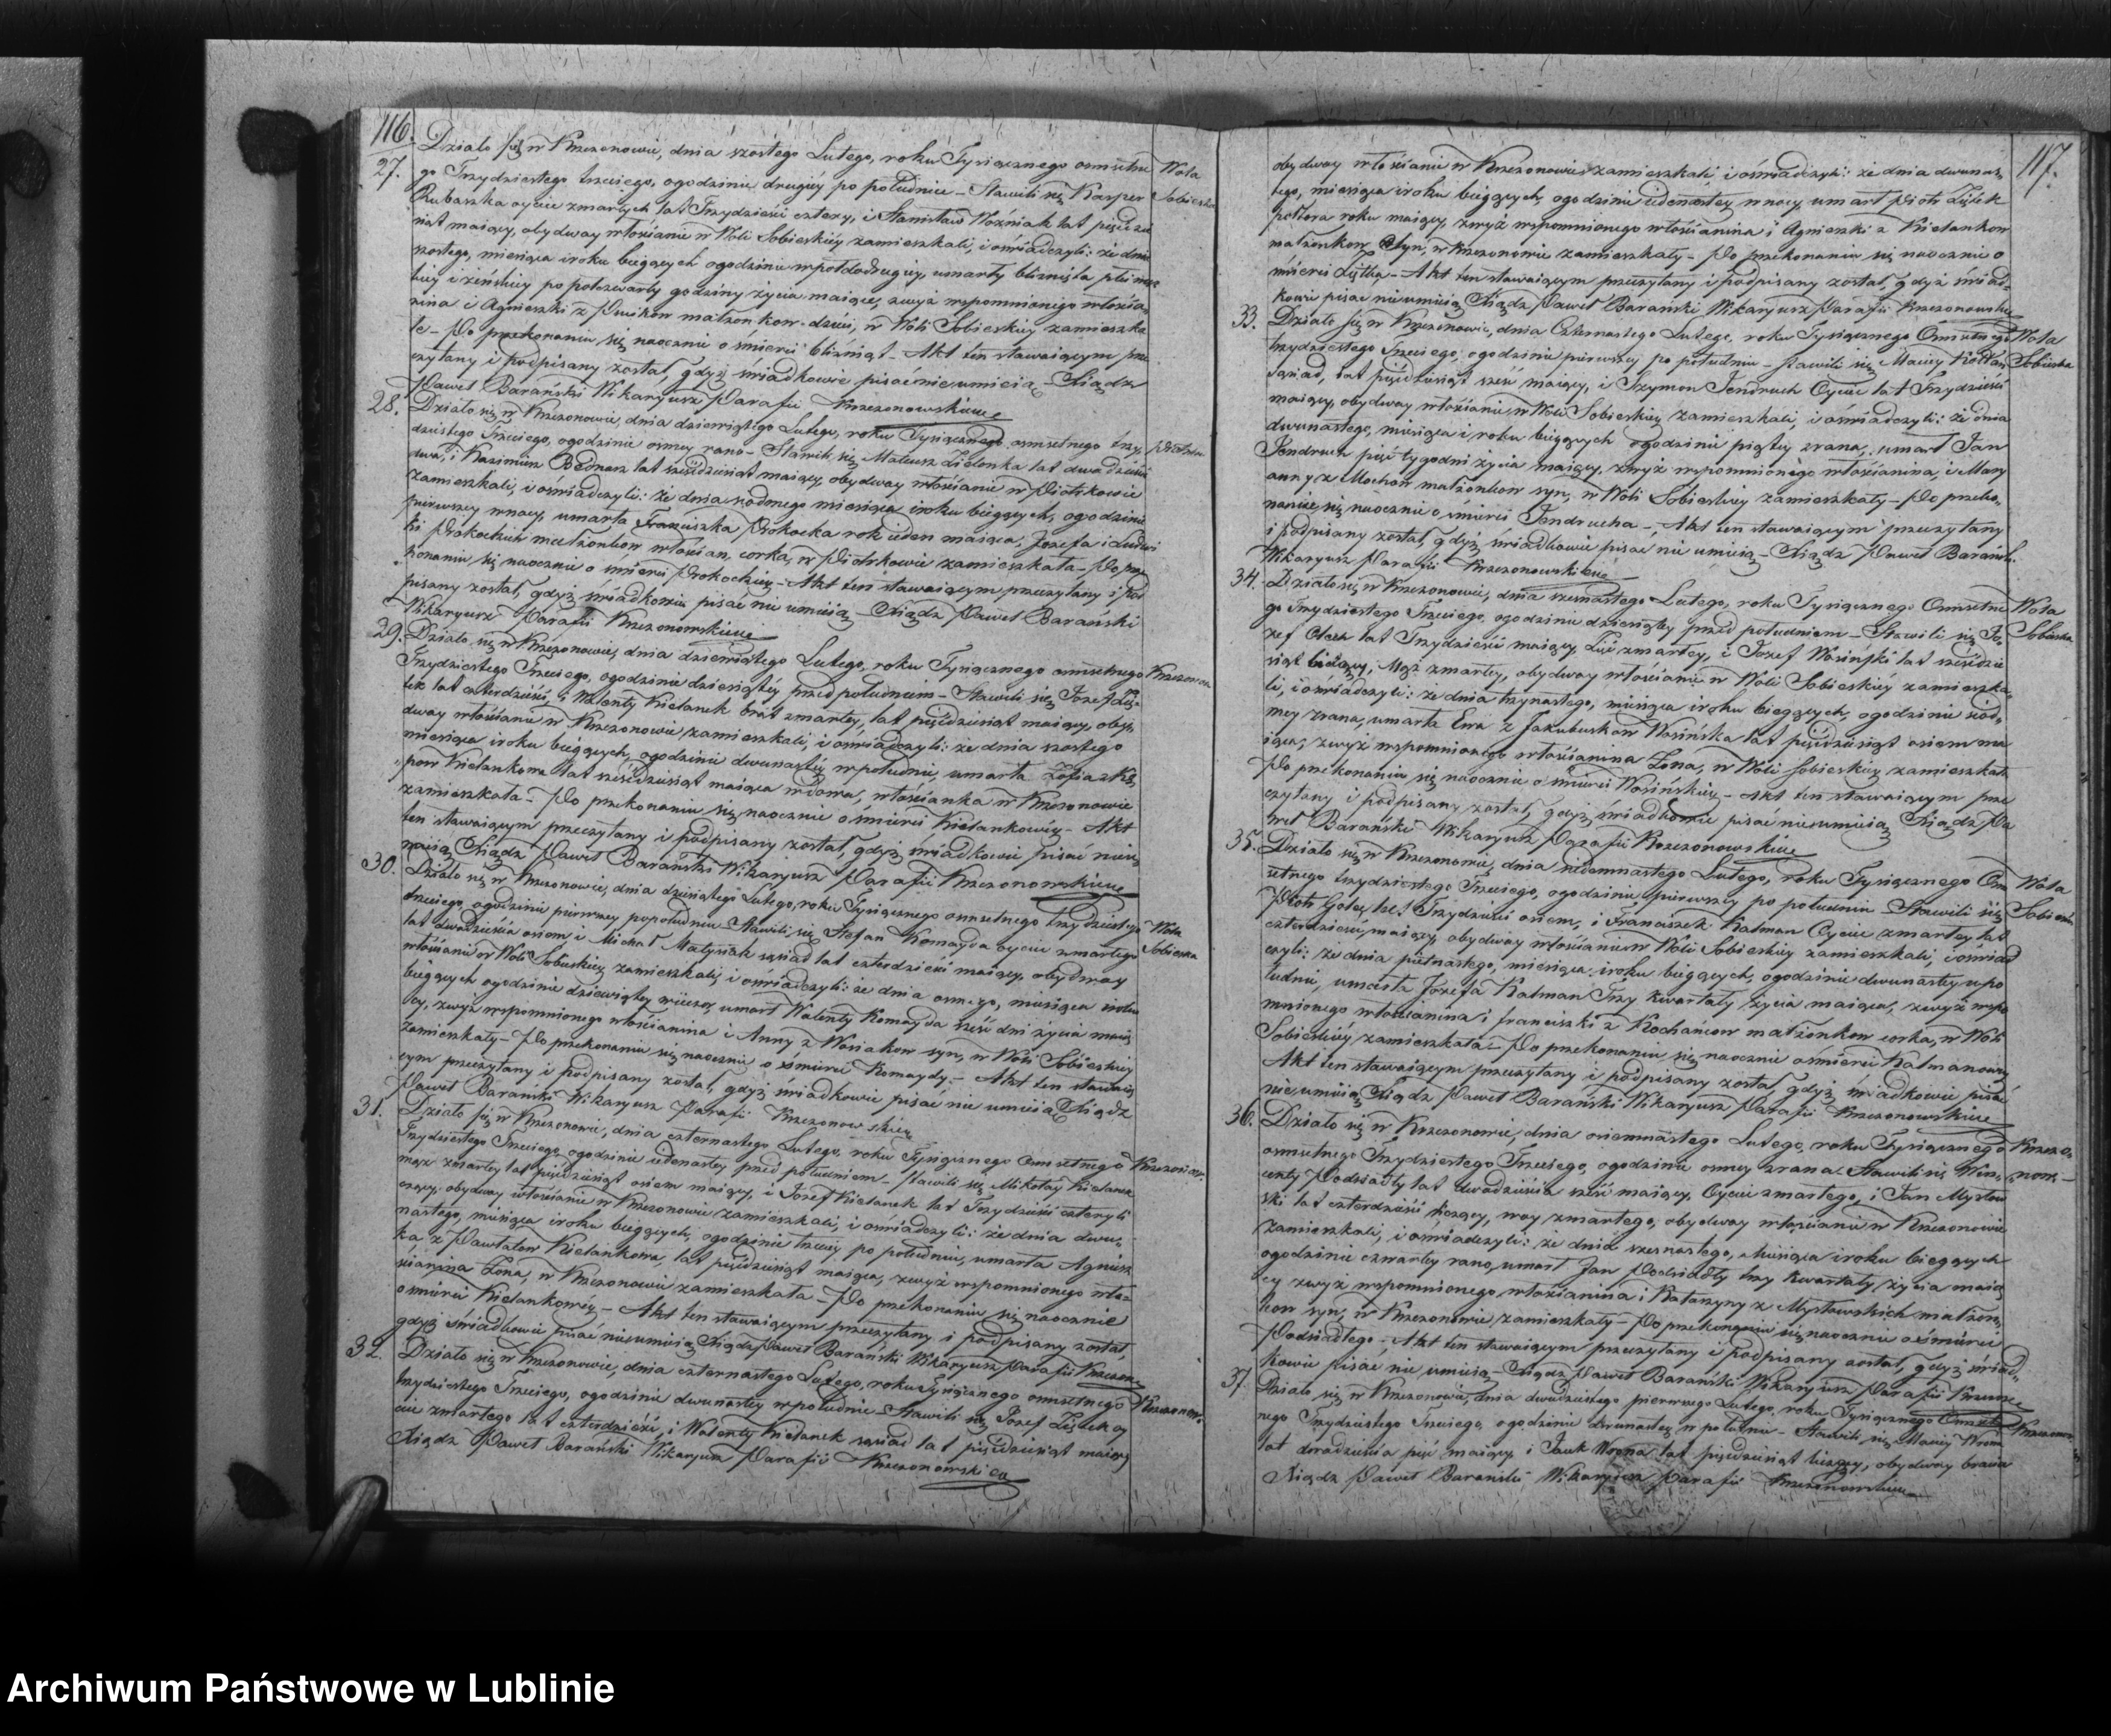 116.
27.
Działo się w Krzczonowie, dnia szostego Lutego, roku Tysiącznego osmsetne
Wola
Sobieska
go Trzydziestego trzeciego, ogodzinie drugiey po południu – Stawili się Kasper
Rubaszka oyciec zmarłych lat Trzydzieści cztery, i Stanisław Woźniak lat pięćdzie
siąt maiący, obydway włościanie w Woli Sobieskiéy zamieszkali, i oświadczyli: że dnia
szostego, miesiąca i roku bieżących ogodzinie wpołdodrugiey, umarły bliznięta płci mez
kiey i żeńskiey po połczwarty godziny życia maiące, zwyż wspomnionego włościa
nina i Agnieszki z małżonkow dzieci, w Woli Sobieskiey zamieszka
łe – Po przekonaniu się naocznie o śmierci bliźniąt – Akt ten stawaiącym prze
czytany i podpisany został, gdyż świadkowie pisać nieumieią – Xiądz
Paweł Barański Wikaryusz Parafii Krzczonowskiey
28.
Działo się w Krzczonowie, dnia dziewiątego Lutego, roku Tysiącznego osmsetnego trzy
dziestego Trzeciego, ogodzinie osmey rano – Stawili się Mateusz Zielonka lat dwadzieścia
dwa, i Kazimierz Bednarz lat sześćdziesiąt maiący, obydway włościanie w Piotrkowie
zamieszkali, i oświadczyli: że dnia siodmego miesiąca i roku bieżących, ogodzinie
pierwszey wnocy, umarła Franciszka Prokocka rok ieden maiąca, Jozefa i Ludwi
ki Prokockich małżonkow włościan, corka, w Piotrkowie zamieszkała – Po prze
konaniu się naocznie o śmierci Prokockiey – Akt ten stawaiącym przeczytany i pod
pisany został, gdyż świadkowie pisać nie umieią – Xiądz Paweł Barański
Wikaryusz Parafii Krzczonowskiey
29.
Działo się w Krzczonowie, dnia dziewiątego Lutego, roku Tysiącznego osmsetnego
Krzczonow
Trzydziestego Trzeciego, ogodzinie dziesiątéy przed południem – Stawili się Jozef Zię
lek lat czterdzieści, i Walenty Kielanek brat zmarłey, lat pięćdziesiąt maiący, oby
dway włościanie w Krzczonowie zamieszkali, i oświadczyli: że dnia szostego
miesiąca i roku bieżących, ogodzinie dwunastéy wpołudnie, umarła Zofia z
Kielankowa lat sześćdziesiąt maiąca wdowa, włościanka w Krzczonowie
zamieszkała – Po przekonaniu się naocznie o śmierci Kielankowéy – Akt
ten stawaiącym przeczytany i podpisany został, gdyż świadkowie pisać nieu
mieią Xiądz Paweł Barański Wikaryusz Parafii Krzczonowskiey
30.
Działo się w Krzczonowie, dnia dziesiątego Lutego, roku Tysiącznego osmsetnego trzydziestego
Wola
Sobieska
trzeciego, ogodzinie pierwszey popołudniu – Stawili się Stefan Komayda oyciec zmarłego
lat dwadzieścia osiem i Michał Matysiak sąsiad lat czterdzieści maiący, obydway
włościanie w Woli Sobieskiey zamieszkali, i oświadczyli: że dnia osmego, miesiąca i roku
bieżących ogodzinie dziewiątey wieczor, umarł Walenty Komayda sześć dni życia maią
cy, zwyż wspomnionego włościanina i Anny z Wosiakow syn, w Woli Sobieskiey
zamieszkały – Po przekonaniu się naocznie o śmierci Komaydy – Akt ten stawaią
cym przeczytany i podpisany został, gdyż świadkowie pisać nie umieią Xiądz
Paweł Barański Wikaryusz Parafii Krzczonowskiey
31.
Działo się w Krzczonowie, dnia czternastego Lutego, roku Tysiącznego osmsetnego
Krzczonow
Trzydziestego Trzeciego, ogodzinie iedenastey przed południem – Stawili się Mikołay Kielanek
mąż zmarłey lat pięćdziesiąt osiem maiący, i Jozef Kielanek lat Trzydzieści cztery li
czący, obydway włościanie w Krzczonowie zamieszkali, i oświadczyli: że dnia dwu
nastego, miesiąca i roku bieżących, ogodzinie trzeciey po południu, umarła Agniesz
ka z Pawłatow Kielankowa, lat pięćdziesiąt maiąca, zwyż wspomnionego wło
ścianina żona, w Krzczonowie zamieszkała – Po przekonaniu się naocznie
o śmierci Kielankowéy – Akt ten stawaiącym przeczytany i podpisany został,
gdyż świadkowie pisać nieumieią Xiądz Paweł Barański Wikaryusz Parafii Krzczon
32.
Działo się w Krzczonowie, dnia czternastego Lutego, roku Tysiącznego osmsetnego
Krzczonow
trzydziestego Trzeciego, ogodzinie dwunastey wpołudnie – Stawili się Jozef Ziętek oy
ciec zmarłego lat czterdzieści, i Walenty Kielanek sąsiad lat pięćdziesiąt maiący
Xiądz Paweł Barański Wikaryusz Parafii Krzczonowskiey
117.
obydway włościanie w Krzczonowie zamieszkali, i oświadczyli: że dnia dwunas
tego, miesiąca i roku bieżących, ogodzinie iedenastey wnocy umarł Piotr Ziętek
połtora roku maiący, zwyż wspomnionego włościanina i Agnieszki z Kielankow
małżonkow Syn, w Krzczonowie zamieszkały – Po przekonaniu się naocznie o
śmierci Ziętka – Akt ten stawaiącym przeczytany i podpisany został, gdyż świad
kowie pisać nieumieią Xiądz Paweł Barański Wikaryusz Parafii Krzczonowskiey
33.
Działo się w Krzczonowie, dnia Czternastego Lutego, roku Tysiącznego Osmsetnego
Wola
Sobieska
trzydziestego Trzeciego, ogodzinie pierwszey po południu – Stawili się Maciey
sąsiad, lat pięćdziesiąt sześć maiący, i Szymon Jendruch Oyciec lat Trzydzieści
maiący, obydway włościanie w Woli Sobieskiey zamieszkali, i oświadczyli: że dnia
dwunastego, miesiąca i roku bieżących ogodzinie piątey zrana, umarł Jan
Jendruch pięć tygodni życia maiący, zwyż wspomnionego włościanina, i Mary
anny z Mochow małżonkow syn, w Woli Sobieskiey zamieszkały – Po przeko
naniu się naocznie o śmierci Jendrucha – Akt ten stawaiącym przeczytany
i podpisany został, gdyż świadkowie pisać nie umieią – Xiądz Paweł Barański
Wikaryusz Parafii Krzczonowskiey
34.
Działo się w Krzczonowie, dnia szesnastego Lutego, roku Tysiącznego Osmsetne
Wola
Sobieska
go Trzydziestego Trzeciego, ogodzinie dziesiątey przed południem – Stawili się Jo
zef lat Trzydzieści maiący, Zięć zmarłey, i Jozef Wosiński lat sześćdzie
siąt liczący, Mąż zmarłey, obydway włościanie w Woli Sobieskiéy zamieszka
li, i oświadczyli: że dnia trzynastego, miesiąca i roku bieżących, ogodzinie siod
mey zrana, umarła Ewa z Jakubuskow Wosińska lat pięćdziesiąt osiem ma
iąca, zwyż wspomnionego włościanina Zona, w Woli Sobieskiey zamieszkała
Po przekonaniu się naocznie o śmierci Wosińskiey – Akt ten stawaiącym prze
czytany i podpisany został, gdyż świadkowie pisać nieumieią Xiądz Pa
weł Barański Wikaryusz Parafii Krzczonowskiey
35.
Działo się w Krzczonowie, dnia siedemnastego Lutego, roku Tysiącznego Osm
Wola
Sobieska
setnego trzydziestego Trzeciego, ogodzinie pierwszey po południu – Stawili się
Piotr lat Trzydzieści osiem, i Franciszek Kalman Oyciec zmarłey lat
czterdzieści maiący, obydway włościanie w Woli Sobieskiey zamieszkali, i oświad
czyli: że dnia piętnastego, miesiąca i roku bieżących, ogodzinie dwunastey wpo
łudnie, umarła Jozefa Kalman Trzy kwartały życia maiąca, zwyż wspo
mnionego włościanina i Franciszki z Kochańcow małżonkow corka, w Woli
Sobieskiéy zamieszkała – Po przekonaniu się naocznie o śmierci Kalmanowny
Akt ten stawaiącym przeczytany i podpisany został, gdyż świadkowie pisać
nieumieią Xiądz Paweł Barański Wikaryusz Parafii Krzczonowskiey
36.
Działo się w Krzczonowie, dnia osiemnastego Lutego, roku Tysiącznego
Krzczo
now
osmsetnego Trzydziestego Trzeciego, ogodzinie osmey zrana – Stawili się Win
centy Podsiadły lat dwadzieścia sześć maiący, Oyciec zmarłego, i Jan Mysłow
ski lat czterdzieści liczący, wuy zmarłego, obydway włościanie w Krzczonowie
zamieszkali, i oświadczyli: że dnia szesnastego, Miesiąca i roku bieżących
ogodzinie czwartey rano, umarł Jan Podsiadły trzy kwartały życia maią
cy zwyż wspomnionego włościanina i Katarzyny z Mysłowskich małżon
kow syn, w Krzczonowie zamieszkały – Po przekonaniu się naocznie o śmierci
Podsiadłego, Akt ten stawaiącym przeczytany i podpisany został, gdyż świad
kowie pisać nie umieią – Xiądz Paweł Barański Wikaryusz Parafii Krzczo
37.
Działo się w Krzczonowie, dnia dwudziestego pierwszego Lutego, roku Tysiącznego Osmset
Krzczonow
nego Trzydziestego Trzeciego, ogodzinie dwunastey w południe – Stawili się Maciey Wrona
lat dwadzieścia pięć maiący i Jan Wrona lat pięćdziesiąt liczący, obydway bracia
Xiądz Paweł Barański Wikaryusz Parafii Krzczonowskiey
Archiwum Państwowe w Lublinie